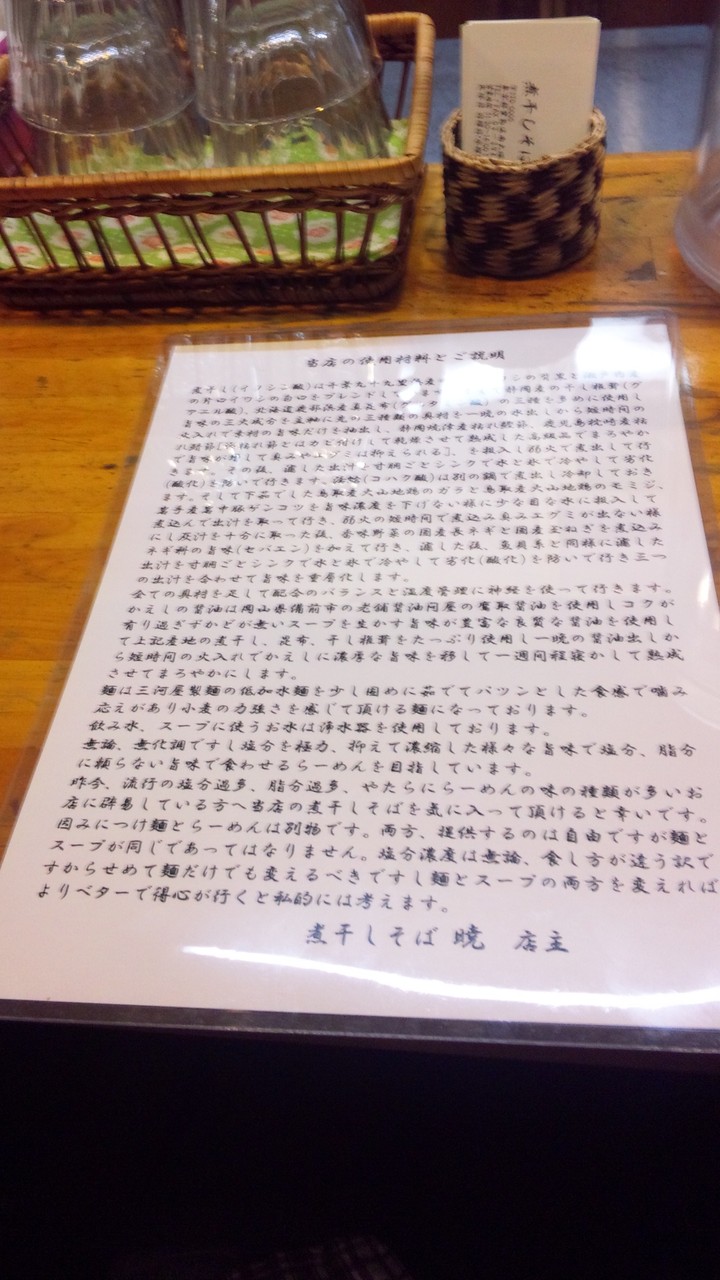 煮干しそば
当店の使用材料とご説明
煮干し(イノシン酸)は千葉九十九里
の片口イワシの旨口をブレンドして 静岡産の干し椎茸(グ
アニル酸)、北海道 産真昆布 の三種を多めに使用し
旨味の三大成分を主軸に先の三種類の具材を一晩の水出しから短時間の
火入れで素材の旨味だけを抽出し、静岡焼津産枯れ鰹節、鹿児島枕崎産枯
れ鯖節[ 枯れ節とはカビ付けして乾燥させて熟成した高級品でまろやか
で旨味が増して臭みやエグミは抑えられる]、を投入し弱火で煮出して行
きます。その後、濾した出汁を寸胴ごとシンクで水と氷で冷やして劣化
(酸化)を防いで行きます。 (コハク酸)は別の鍋で煮出し冷却しておき
ます。そして下茹でした鳥取産大山地鶏のガラと鳥取産大山地鶏のモミジ、
岩手産岩中豚ゲンコツを旨味濃度を下げない様に少な目な水に投入して
煮込んで出汁を取って行き、弱火の短時間で煮込み臭みエグミが出ない様
にし灰汁を十分に取った後、香味野菜の国産長ネギと国産玉ねぎを煮込み
ネギ科の旨味(セパエン)を加えて行き、濾した後、魚貝系と同様に濾した
出汁を寸胴ごとシンクで水と氷で冷やして劣化(酸化)を防いで行き三つ
の出汁を合わせて旨味を重層化します。
全ての具材を足して配合のバランスと温度管理に神経を使って行きます。
かえしの醤油は岡山県備前市の老舗醤油問屋の鷹取醤油を使用しコクが
有り過ぎずかどが無いスープを生かす旨味が豊富な良質な醤油を使用し
て上記産地の煮干し、昆布、干し椎茸をたっぷり使用し一晩の醤油出しか
ら短時間の火入れでかえしに濃厚な旨味を移して一週間程寝かして熟成
させてまろやかにします。
麺は三河屋製麺の低加水麺を少し固めに茹でてパツンとした食感で噛み
応えがあり小麦の力強さを感じて頂ける麺になっております。
飲み水、スープに使うお水は浄水器を使用しております。
無論、無化調ですし塩分を極力、抑えて濃縮した様々な旨味で塩分、脂分
に頼らない旨味で食わせるらーめんを目指しています。
昨今、流行の塩分過多、脂分過多、やたらにらーめんの味の種類が多いお
店に辟易している方へ当店の煮干しそばを気に入って頂けると幸いです。
因みにつけ麺とらーめんは別物です。両方、提供するのは自由ですが麺と
スープが同じであってはなりません。塩分濃度は無論、食し方が違う訳で
すからせめて麺だけでも変えるべきですし麺とスープの両方を変えれば
よりベターで得心が行くと私的には考えます。
煮干しそば 暁 店主